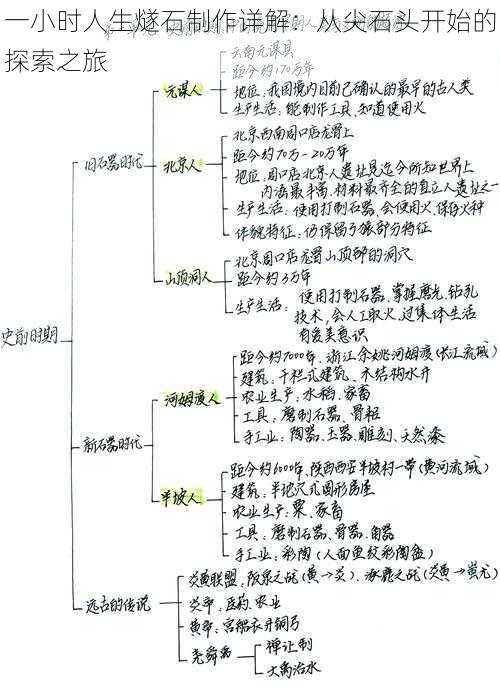 一小时人生燧石制作详解：从尖石头开始的
探索之旅
云南元谋县
距今约170万年
元谋人
地位:我国境内目前已确认的最早的古人类
生产生活:能制作工具,知道使用火
旧石器时代
北京西南周口店龙骨山
距今约70万-20万年
北京人
地位:周口店北京人遗址是迄今所知世界上
内涵最丰富、材料最齐全的直立人遗址之一
生产生活:使用打制石器、会使用火、保存火种
体貌特征:仍保留了猿部分特征
北京周口店龙骨山顶部的洞穴
山顶洞人
距今约3万年
生产生活:使用打制石器、掌握磨光、钻孔
技术,会人工取火,过集体生活
有爱美意识
史前时期
距今约7000年、浙江余姚河姆渡(长江流域)
建筑:干栏式建筑、木结构水井
河姆渡人
农业生产:水稻、家畜
工具:磨制石器、骨耜
手工业:陶器、玉器、雕刻、天然漆
新石器时代
距今约6000年、陕西西安半坡村一带(黄河流域)
建筑:半地穴式圆形房屋
半坡人
农业生产:粟、家畜
工具:磨制石器、骨器、角器
手工业:彩陶(人面鱼纹彩陶盆)
炎黄联盟:阪泉之战(黄→炎)、涿鹿之战(炎黄→蚩尤)
远古的传说
炎帝:医药、农业
黄帝:宫船衣井铜弓
尧舜禹
禅让制
大禹治水